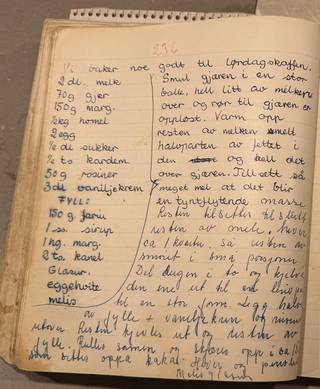 236
Vi baker noe godt til lørdagskaffen.
2 dl. melk
70g gjær
150g marg.
½kg hvmel
2 egg
½ dl sukker
½ ts kardem.
50g rosiner
3 dl vaniljekrem
FYLL:
150 g. farin
1 ss. sirup
1 hg. marg.
2 ts. kanel
Glasur.
eggehvite
melis
Smul gjæren i en stor
bolle, hell litt av melken
over og rør til gjæren er
oppløst. Varm opp
resten av melken smelt
halvparten av fettet i
den og hell det
over gjæren. Tilsett så
meget mel at det blir
en tyntflytende masse
Resten tilsettes til slutt
resten av mele. hever
ca 1 kvarter. så resten av
smøret i små porsjoner
Del deigen i to og kjevle
den ene ut til en
til en stor form. Legg halv
av fylle + vaniljekrem og rosiner
utover. Resten kjevles ut og resten av
fylle. Rulles sammen og skjæres opp i
som settes oppå kaka. Hever og
Melis glasur